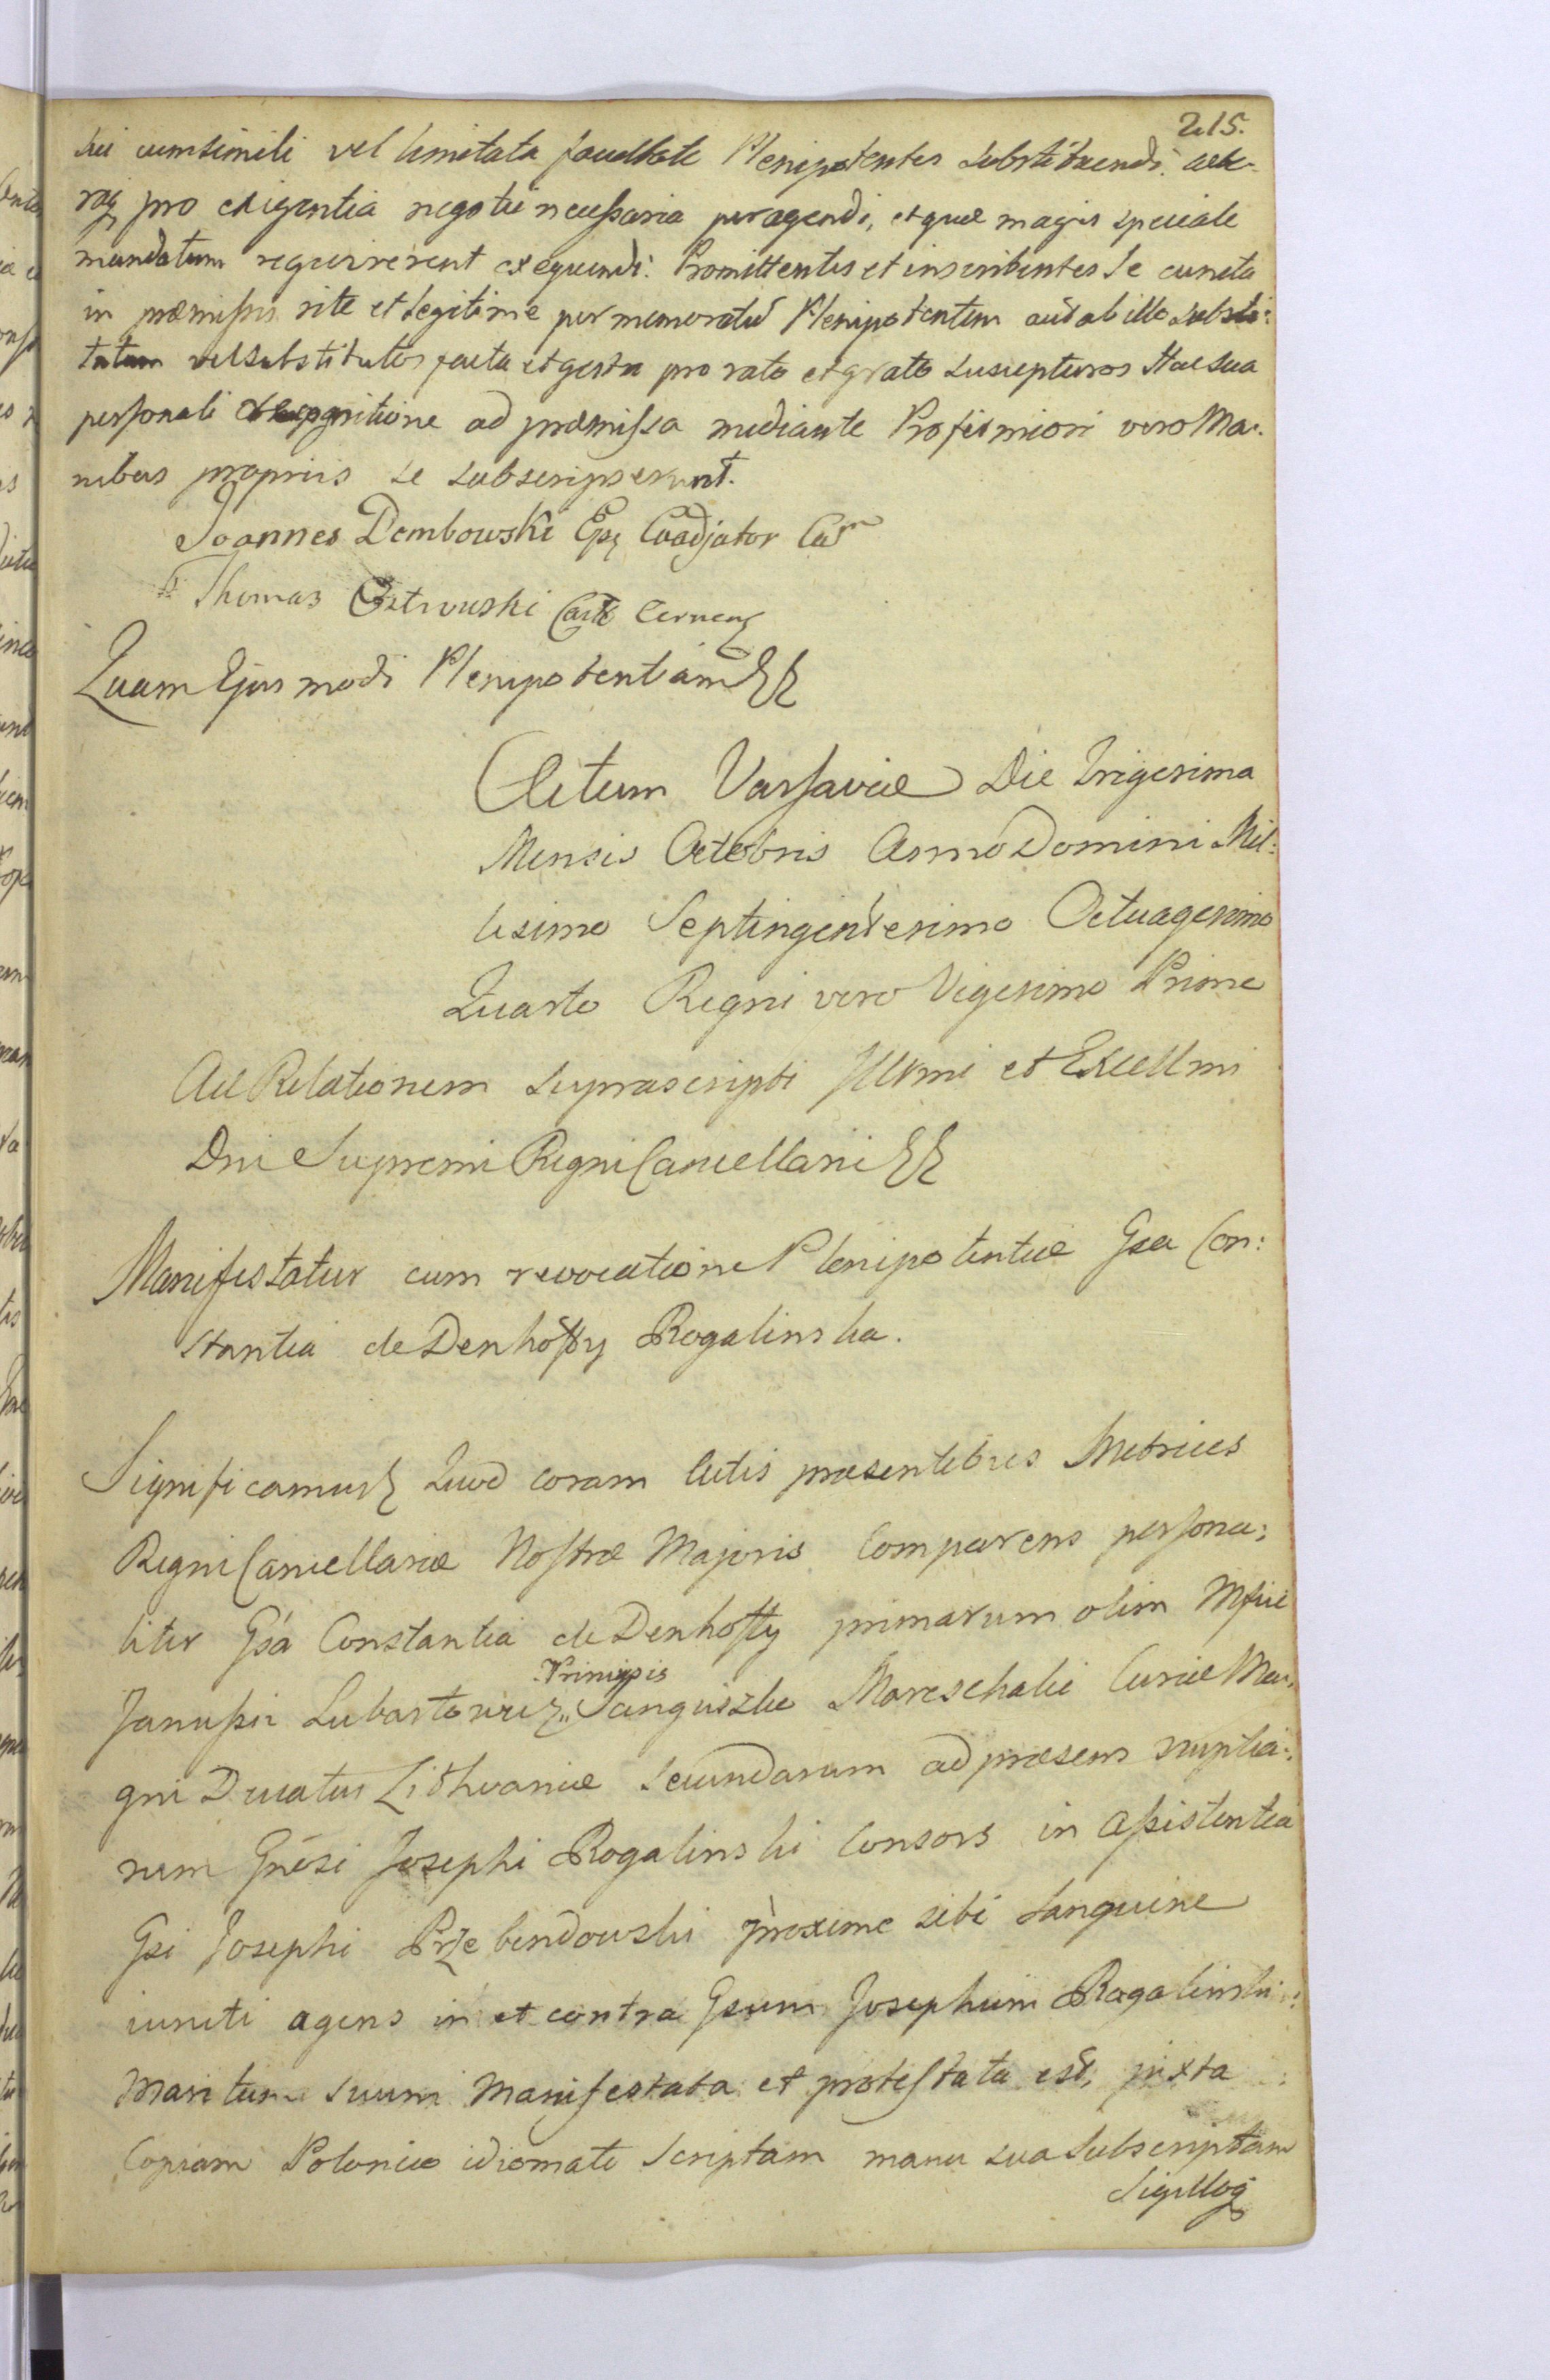 215.
sui cumsimili vel limitata facultate Plenipotentes substituendi. cete-
raq pro exigentia negotii necessaria peragendi, et quæ magis speciale
mandatum requirerent exequendi. Promittentes et inscribentes Se cuncta
in præmissis rite et legitime per memoratũ Plenipotentem aut ab illo substi:
tutum vel substitutos facta et gesta pro rato et grato suscepturos Hac sua
personali recognitione ad præmissa mediante Pro firmiori vero Ma:
nibus propriis se subscripserunt.
Joannes Dembowski Epq Coadjator Car
Thomas Ostrowski Castt Cernen
Quam Ejus modi Plenipotentiam
Actum Varsaviæ Die Trigesima
Mensis Octobris Anno Domini Mil:
lesimo Septingentesimo Octuagesimo
Quarto Regni vero Vigesimo Primo
Ad Relationem suprascripti Illmi et Excellmi
Dni Supremi Regni Cancellarii
Manifestatur cum revocatione Plenipotentiæ Gsa Con:
stantia de Denhoffy Rogalinska.
Significamus Quod coram Actis præsentibus Metrices
Regni Cancellariæ Nostræ Majoris Comparens persona:
liter Gsa Constantia de Denhoffy primarum olim Mfici
Principis
Janussii Lubartowicz „ Sanguszko Mareschalii Curiæ Ma:
gni Ducatus Lithvaniæ secundarum ad præsens nuptia:
rum Gnesi Josephi Rogalinski Consors in assistentia
Gsi Josephi Przebendowski proxime sibi sanguine
iuncti agens in et contra Gsum Josephum Rogalinski
Maritum suum Manifestata et protestata est, juxta
Copiam Polonico idiomate scriptam manu sua subscriptam
Sigilloq